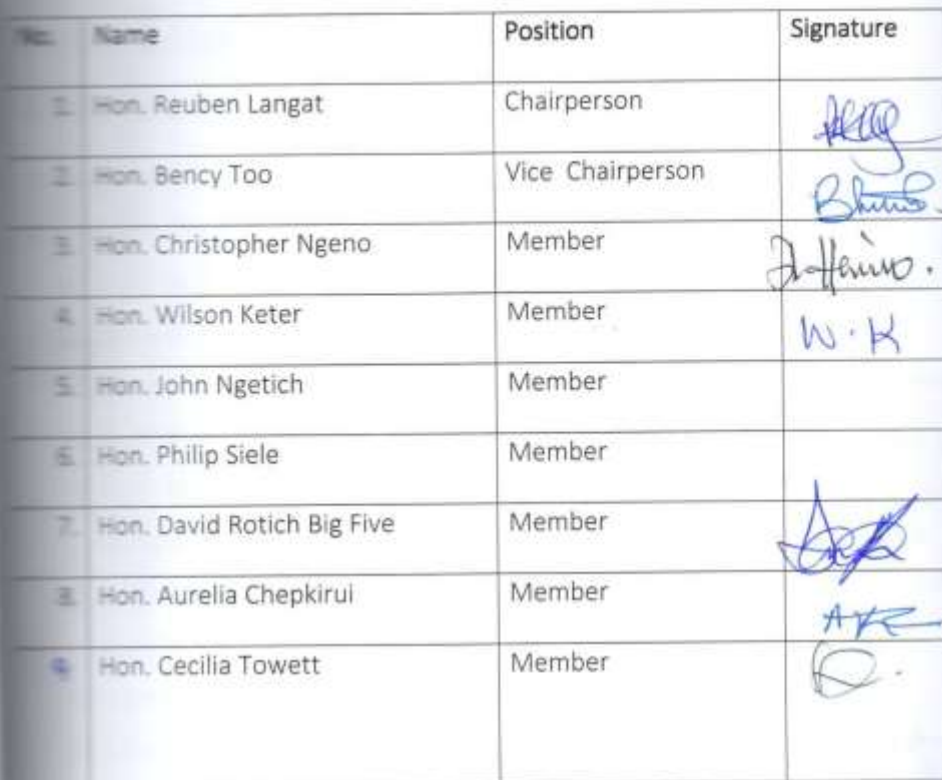 No. Name Position Signature
1. Hon. Reuben Langat Chairperson
2. Hon. Bency Too Vice Chairperson
3. Hon. Christopher Ngeno Member
4. Hon. Wilson Keter Member W. K
5. Hon. John Ngetich Member
6. Hon. Philip Siele Member
7. Hon. David Rotich Big Five Member
8. Hon. Aurelia Chepkirui Member
9. Hon. Cecilia Towett Member